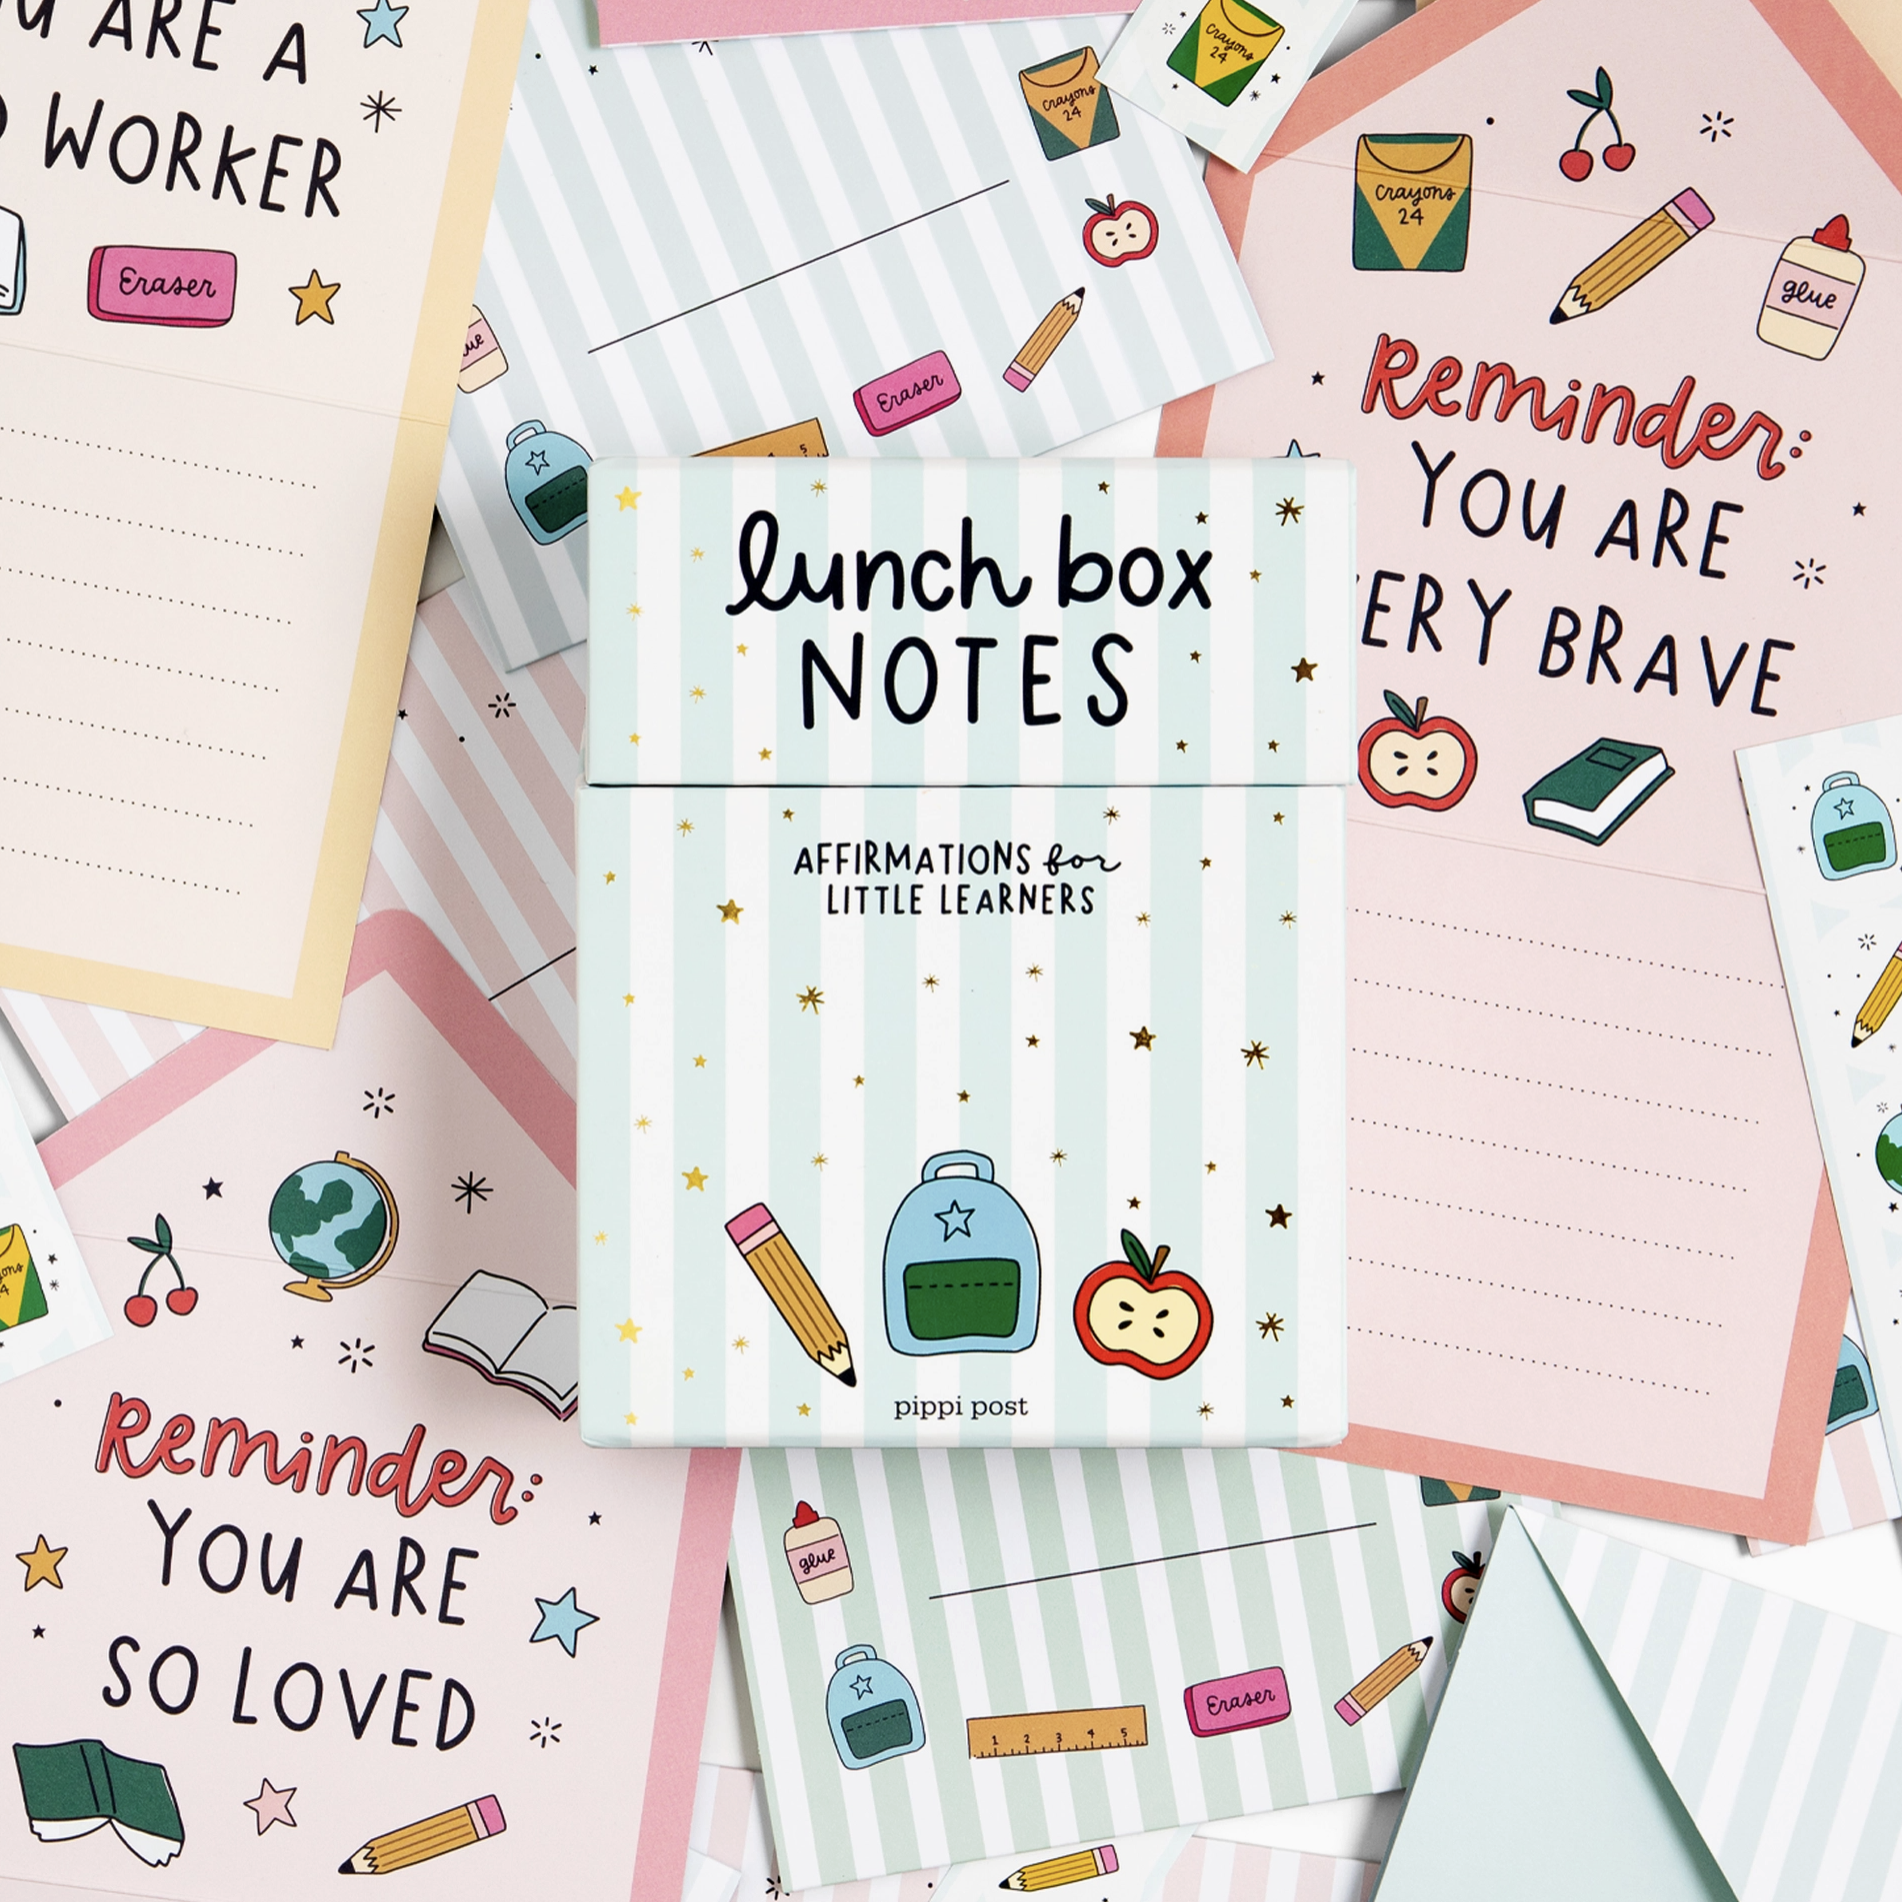 ARE A
WORKER
Eraser
Crayons
24
Eraser
5
Crayons
24
Crayons
24
glue
Reminder:
YOU ARE
BRAVE
lunch box
NOTES
AFFIRMATIONS for
LITTLE LEARNERS
pippi post
Reminder:
YOU ARE
SO LOVED
glue
1 2 3 4 5
Eraser